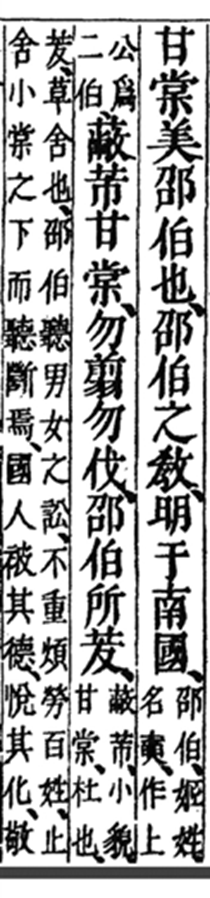 甘棠美邵伯也、邵伯之敎、明于南國、邵伯、姬姓、名奭、作上
公爲二伯、蔽芾甘棠、勿翦勿伐、邵伯所茇、蔽芾、小貌、甘棠、杜也、
茇、草舍也、邵伯聽男女之訟、不重煩勞百姓、止
舍小棠之下而聽斷焉、國人被其德、悅其化、敬